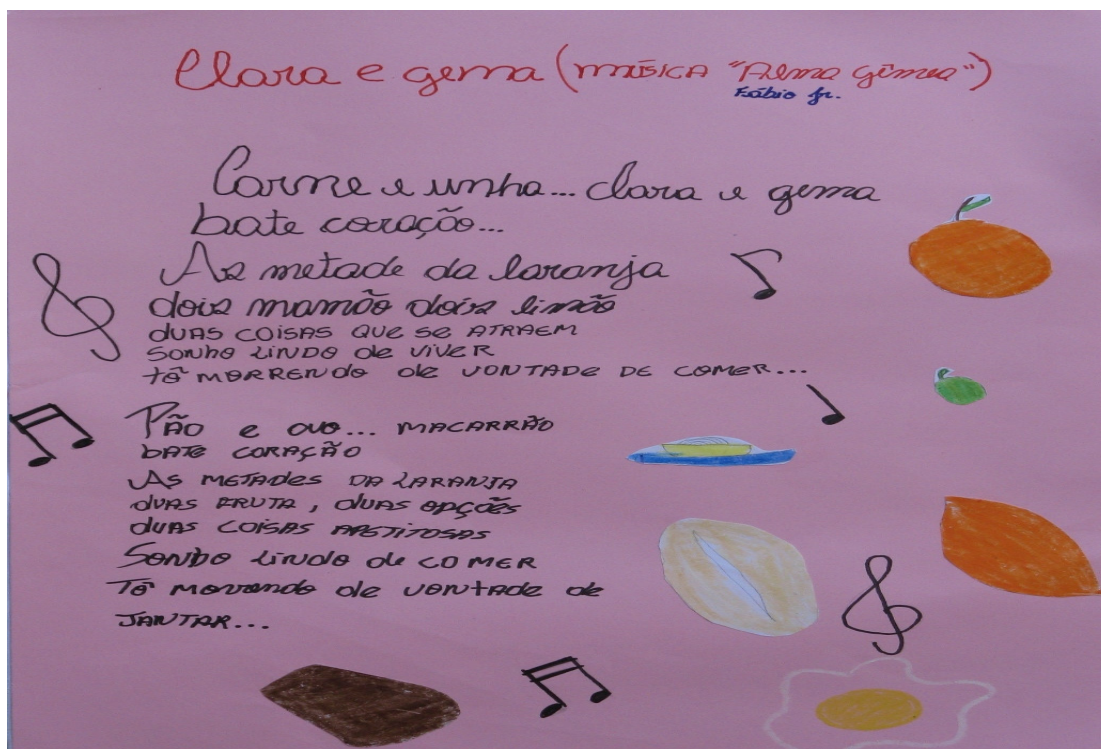 Clara e gema (música "Alma Gêmea")
Fábio Jr.
Carne e unha... clara e gema
bate coração...
As metade da laranja
dois mamão dois limão
duas coisas que se atraem
Sonho lindo de viver
tô morrendo de vontade de comer...
Pão e ovo... macarrão
bate coração
As metades da laranja
duas fruta, duas opções
duas coisas apetitosas
Sonho lindo de comer
Tô morrendo de vontade de
jantar...